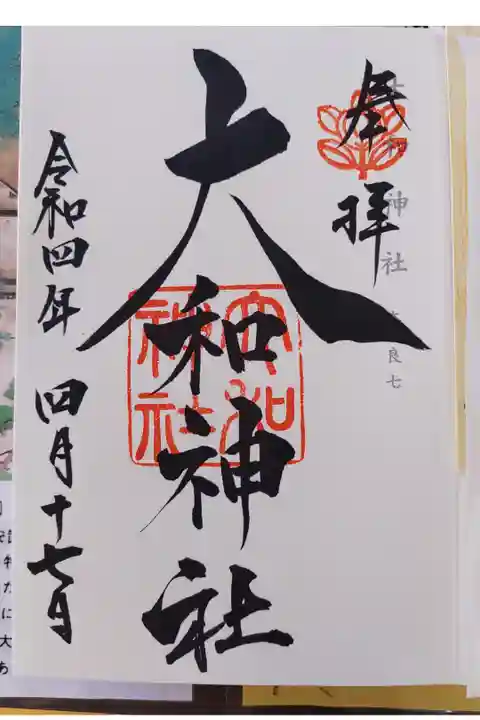 奉拝
大和神社
大和神社
令和四年 四月十七日
大和神社
良七
に
大
あ